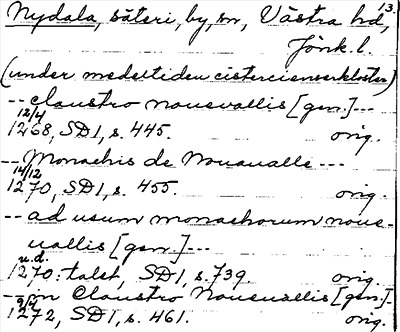 13.
Nydala, säteri, by, sn, Västra hd,
Jönk. l.
(under medeltiden cistercienserkloster)
-- claustro nouevallis [gen.] ---
12/4
1268, SD1, s. 445. orig.
-- Monachis de Nouaualle ---
14/12
1270, SD1, s. 455. orig.
-- ad usum monachorum noue-
uallis [gen.] ---
u.d.
1270: talet, SD1, s. 739. orig.
-- Claustro Noueuallis [gen.]
1272, SD1, s. 461. orig.